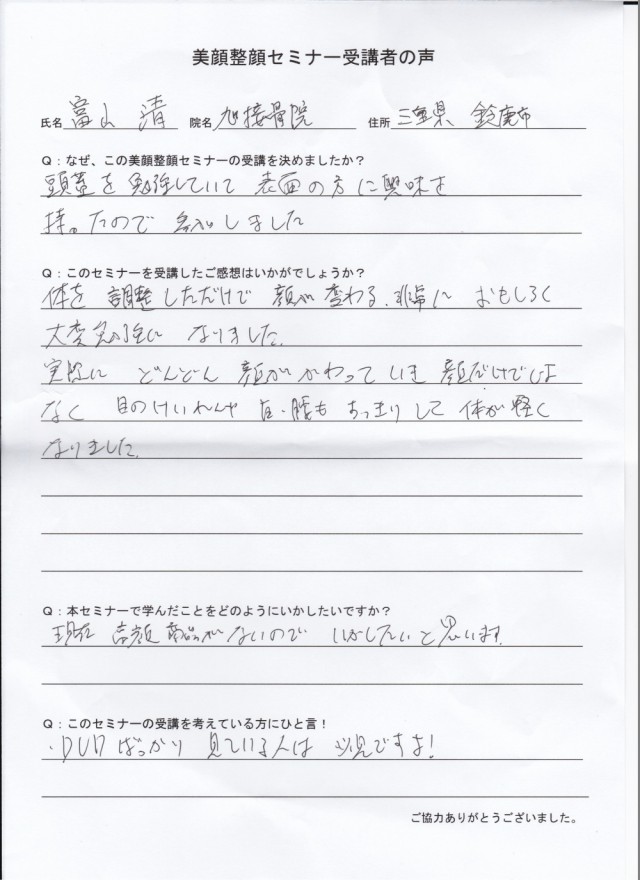 美顔整顔セミナー受講者の声
氏名 富山 清 院名 旭接骨院 住所 三重県 鈴鹿市
Q：なぜ、この美顔整顔セミナーの受講を決めましたか？
頭蓋を勉強していて 表面の方に興味を
持ったので 参加しました
Q：このセミナーを受講したご感想はいかがでしょうか？
体を 調整しただけで 顔が変わる、非常に おもしろく
大変勉強に なりました。
実際に どんどん 顔が かわって いき 顔だけでは
なく 目のけいれんや 首・腰も すっきりして 体が軽く
なりました。
Q：本セミナーで学んだことをどのようにいかしたいですか？
現在 商品がないので いかしたいと思います。
Q：このセミナーの受講を考えている方にひと言！
・DVDばっかり 見ている人は 必見ですよ！
ご協力ありがとうございました。